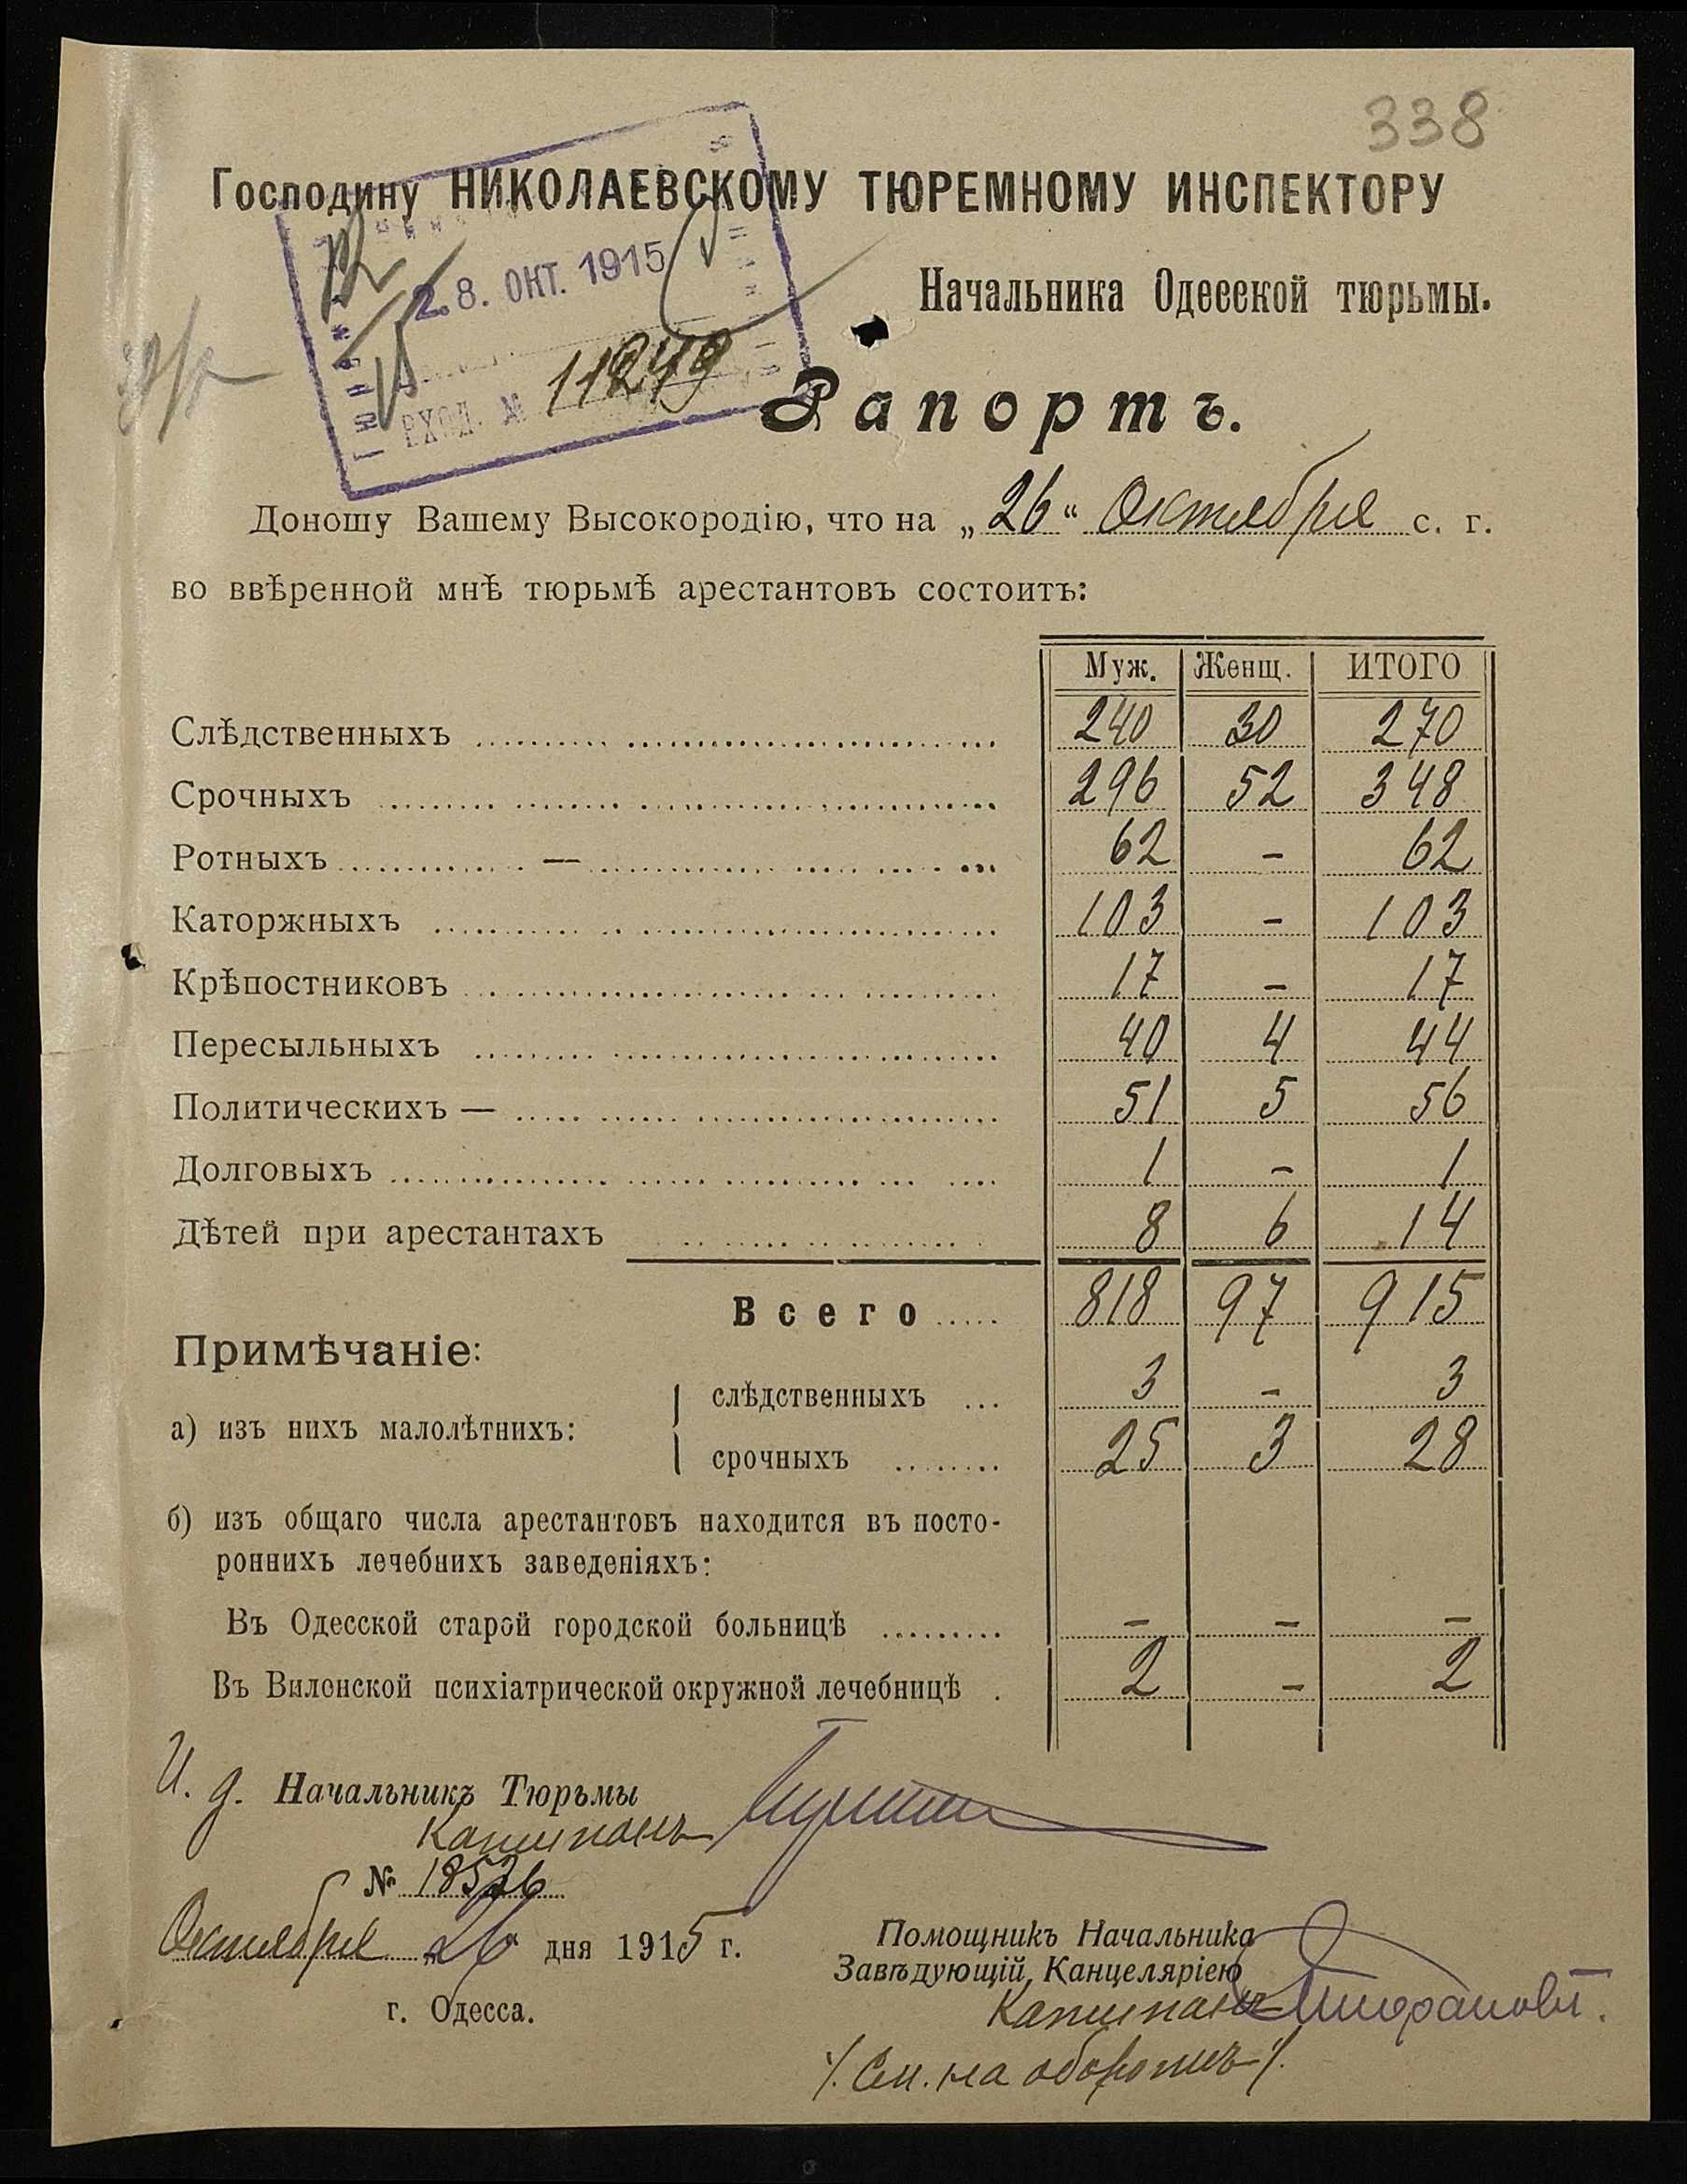 338
Господину НИКОЛАЕВСКОМУ ТЮРЕМНОМУ ИНСПЕКТОРУ
28. ОКТ. 1915
ВХОД. № 11249
Начальника Одесской тюрьмы.
Рапортъ.
Доношу Вашему Высокородію, что на „26“ Октября с. г.
во ввѣренной мнѣ тюрьмѣ арестантовъ состоитъ:
Муж. Женщ. ИТОГО
Слѣдственныхъ 240 30 270
Срочныхъ 296 52 348
Ротныхъ — 62 - 62
Каторжныхъ 103 - 103
Крѣпостниковъ 17 - 17
Пересыльныхъ 40 4 44
Политическихъ — 51 5 56
Долговыхъ 1 - 1
Дѣтей при арестантахъ 8 6 14
Всего 818 97 915
Примѣчаніе:
а) изъ нихъ малолѣтнихъ:
слѣдственныхъ 3 - 3
срочныхъ 25 3 28
б) изъ общаго числа арестантовъ находится въ посто-
роннихъ лечебнихъ заведеніяхъ:
Въ Одесской старой городской больницѣ - - -
Въ Виленской психіатрической окружной лечебницѣ 2 - 2
И. д. Начальникъ Тюрьмы
Капитанъ
№ 18526
Октября „26“ дня 1915 г.
г. Одесса.
Помощникъ Начальника
Завѣдующій, Канцеляріею
Капитанъ
/. См. на оборотѣ /.